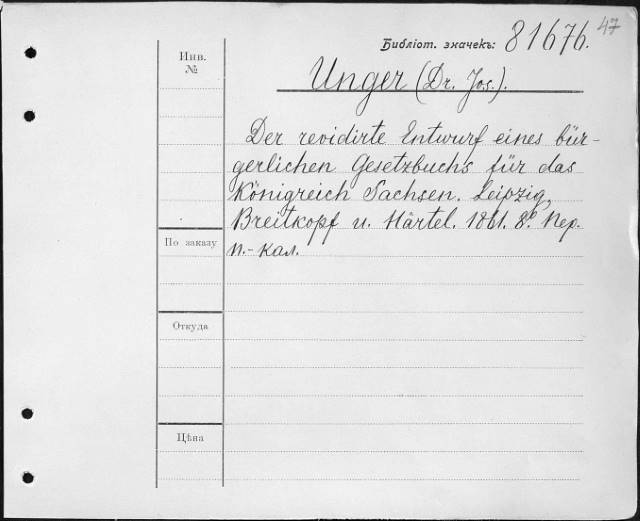 47
Библіот. значекъ: 81676.
Инв.
№
Unger (Dr. Jos.).
Der revidirte Entwurf eines bür-
gerlichen Gesetzbuchs für das
Königreich Sachsen. Leipzig,
Breitkopf u. Härtel. 1861. 8º. Пер.
п.-кал.
По заказу
Откуда
Цѣна